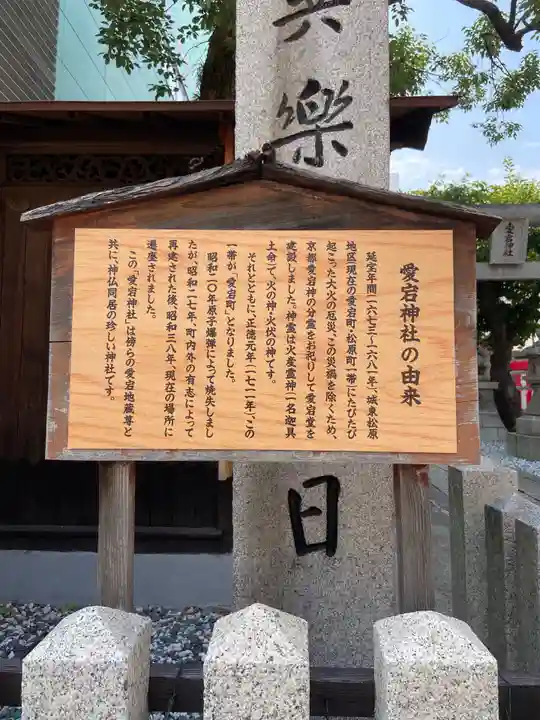 愛宕神社の由来
延宝年間(一六七三〜一六八一)、城東松原
地区(現在の愛宕町・松原町一帯)にたびたび
起こった大火の厄災、この災禍を除くため、
京都愛宕神の分霊をお祀りして愛宕堂を
建設しました。神霊は火産霊神(一名迦具
土命)で、火の神・火伏の神です。
それとともに、正徳元年(一七一一年)、この
一帯が「愛宕町」となりました。
昭和二〇年原子爆弾によって焼失しまし
たが、昭和二七年、町内外の有志によって
再建された後、昭和三八年、現在の場所に
遷座されました。
この「愛宕神社」は傍らの愛宕地蔵尊と
共に、神仏同居の珍しい神社です。
樂
日
愛宕神社